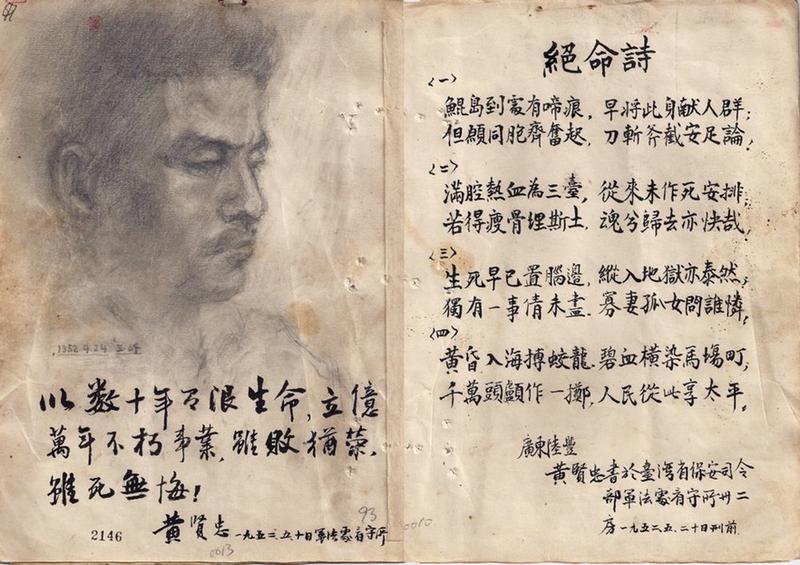 1952.4.24
以数十年有限生命，立億
萬年不朽事業，雖敗猶榮，
雖死無悔！
黃賢忠 一九五二、五、十日軍法處看守所
2146
93
0013
0010
絕命詩
〈一〉
鯤島到處有啼痕，早將此身献人群；
但願同胞齊奮起，刀斬斧截安足論，
〈二〉
滿腔熱血為三臺，從來未作死安排，
若得瘦骨埋斯土，魂兮歸去亦快哉，
〈三〉
生死早已置腦邊，縱入地獄亦泰然，
獨有一事情未盡，寡妻孤女問誰憐，
〈四〉
黃昏入海搏蛟龍，碧血橫染馬場町，
千萬頭顱作一擲，人民從此享太平。
廣東陸豐
黃賢忠書於臺灣省保安司令
部軍法處看守所卅二
房一九五二、五、二十日刑前